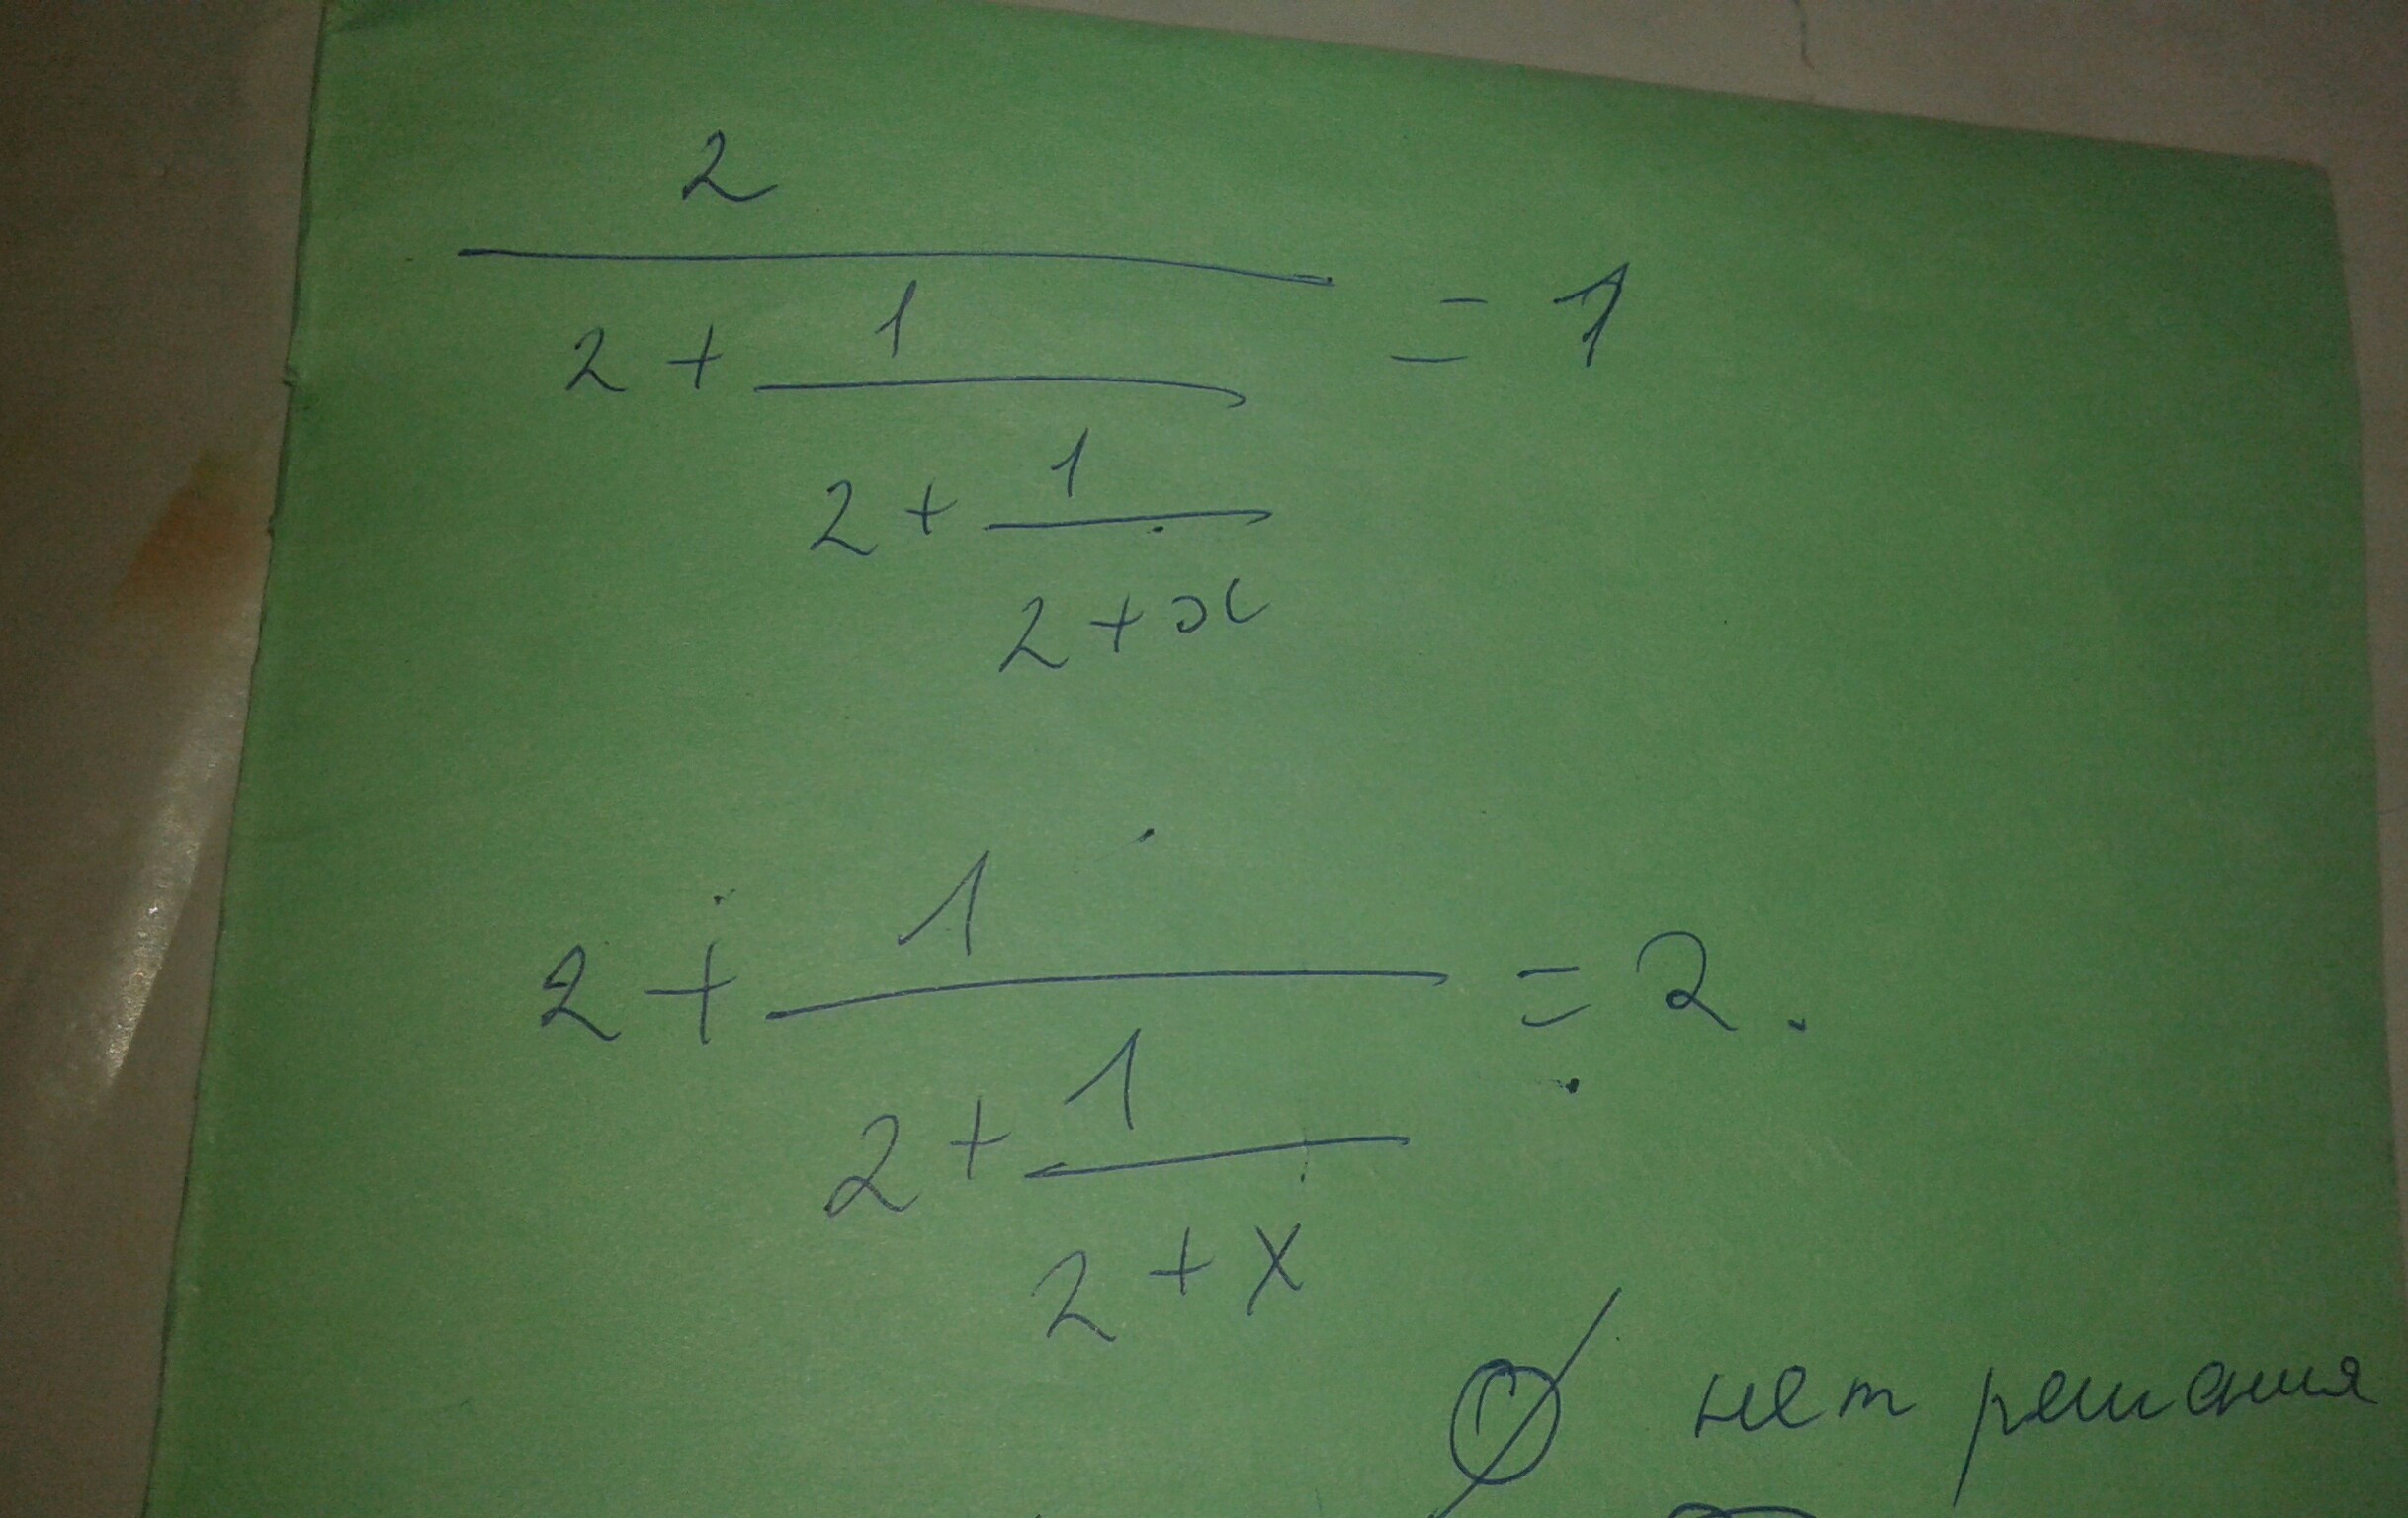 2
2 + 1 = 1
2 + 1
2 + x
2 + 1 = 2.
2 + 1
2 + x
∅ нет решения